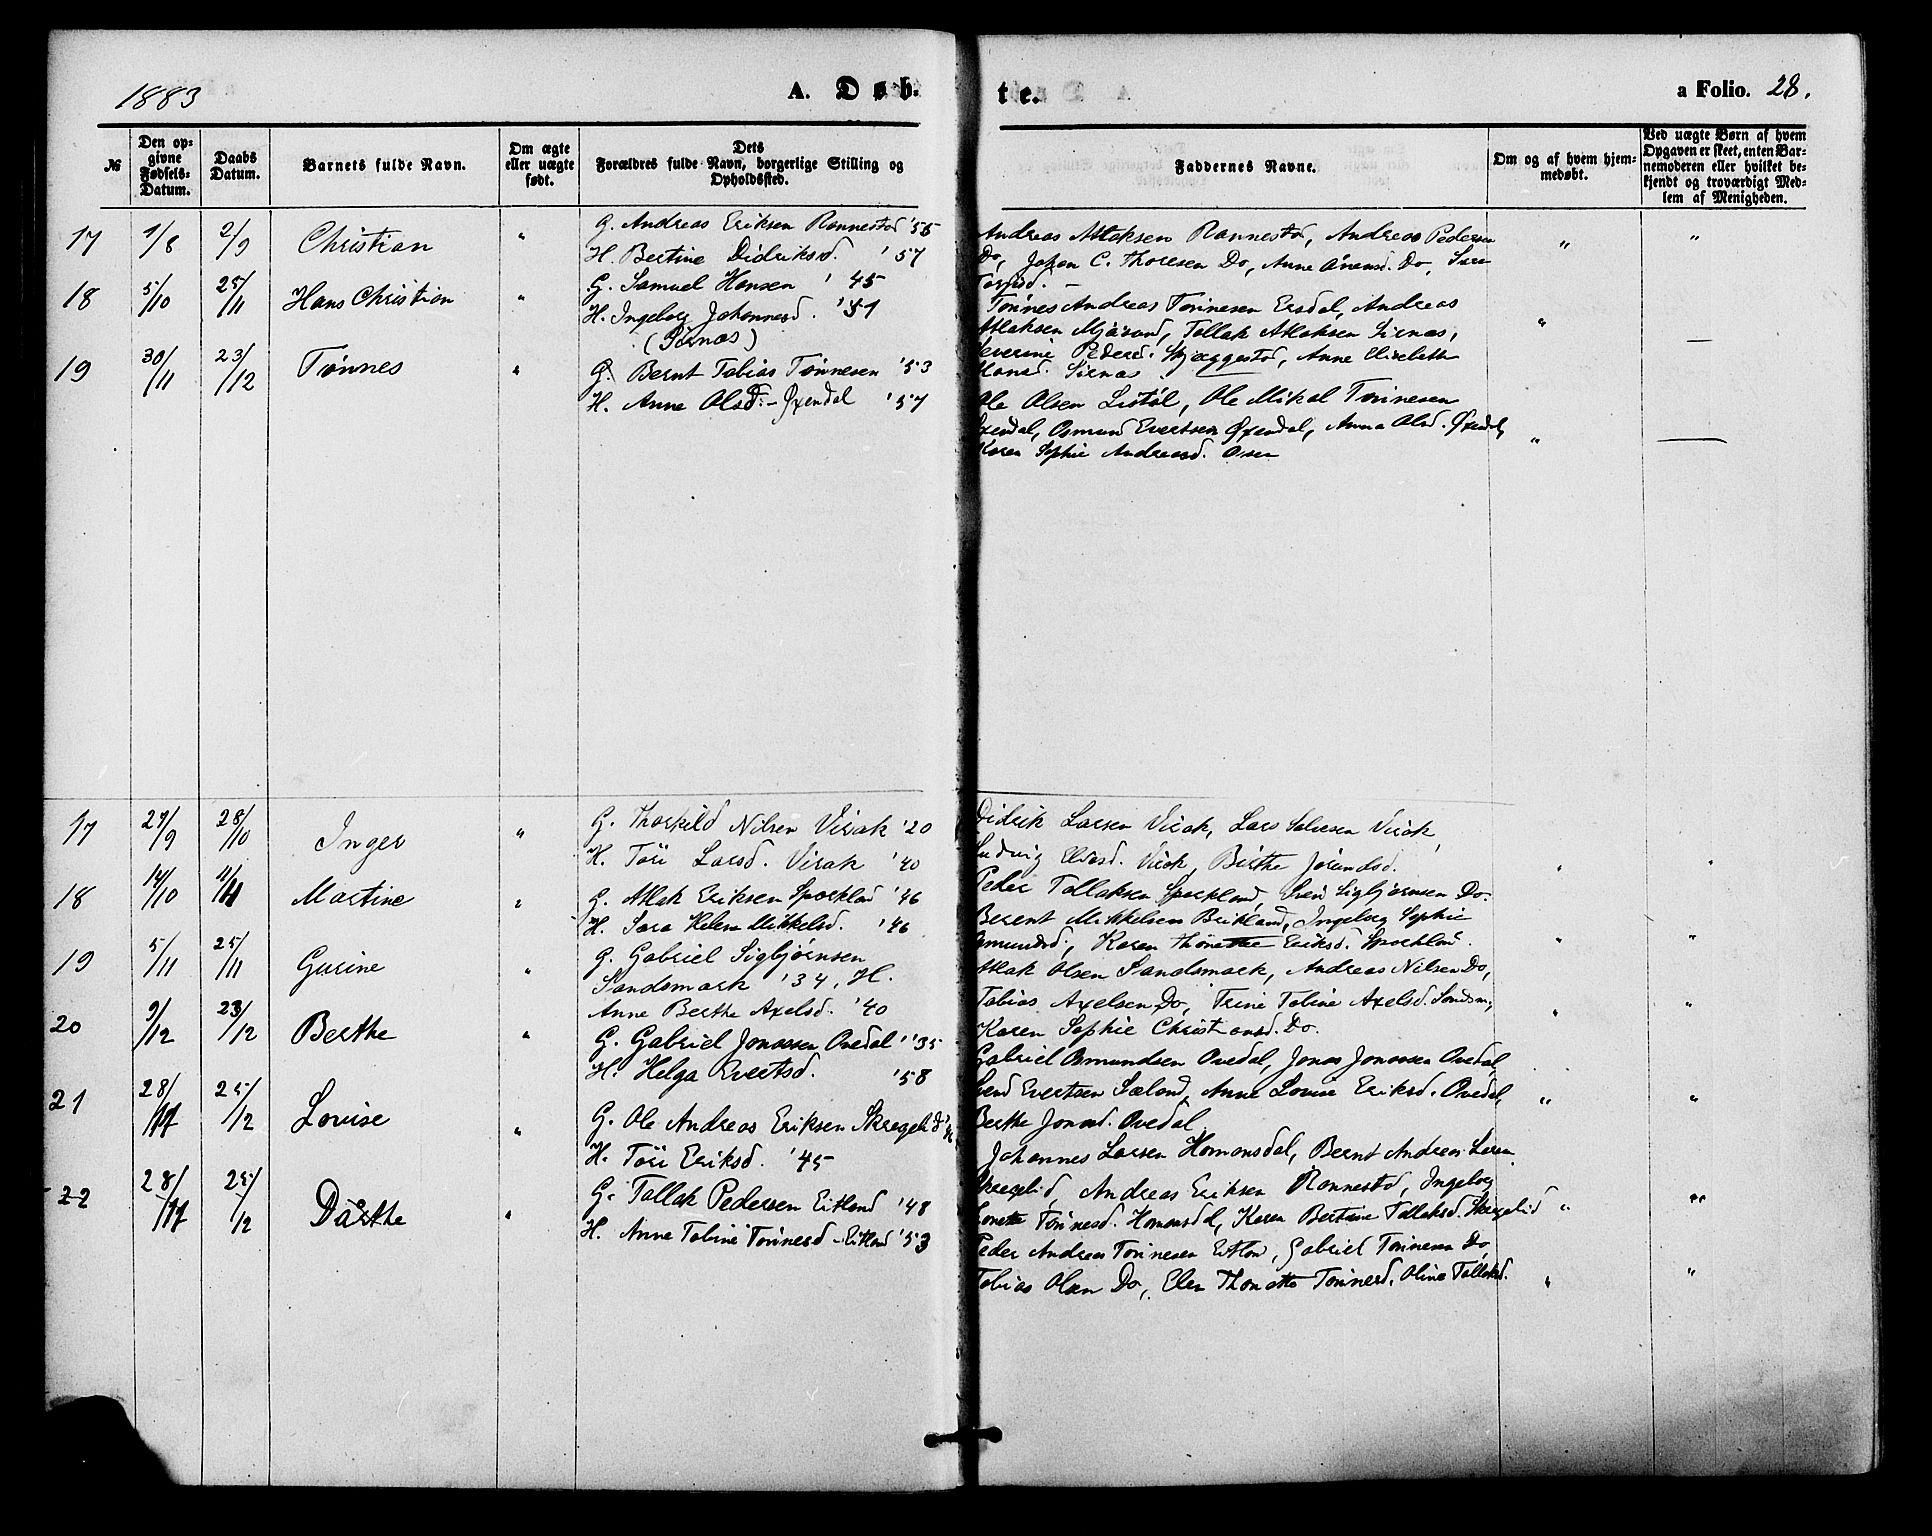 1883
A. Døb-
te.
a Folio. 28.
№
Den op-
givne
Fødsels-
Datum.
Daabs
Datum.
Barnets fulde Navn.
Om ægte
eller uægte
født.
Dets
Forældres fulde Navn, borgerlige Stilling og
Opholdssted.
Faddernes Navne.
Om og af hvem hjem-
medøbt.
Ved uægte Børn af hvem
Opgaven er skeet, enten Bar-
nemoderen eller hvilket be-
kjendt og troværdigt Med-
lem af Menigheden.
17 1/8 2/9 Christian " G. Andreas Eriksen Rannestad '55
H. Bertine Didriksd. '57
Andreas Atlaksen Rannestad, Andreas Pedersen
Do, Johan C. Thoresen Do, Anne Do, Sara
" "
18 5/10 25/11 Hans Christian " G. Samuel Hansen '45
H. Ingeborg Johannesd. '51
(Sirnæs)
Tønnes Andreas Tønnesen Ersdal, Andreas
Atlaksen Mjåsund, Tallak Atlaksen Sirnæs,
Severine Pedersd. Skjæggestad, Anne Elisabeth
Hansd. Sirnæs
" —
19 30/11 23/12 Tønnes " G. Bernt Tobias Tønnesen '53
H. Anne Olsd. - Øxendal '57
Ole Olsen Listøl, Ole Mikal Tønnesen
Øxendal, Osmund Evertsen Øxendal, Anna Olsd. Øxendal,
Karen Sophie Andreasd. Osen
" —
17 27/9 28/10 Inger " G. Thorkild Nilsen Virak '20
H. Tøri Larsd. Virak '40
Didrik Larsen Virak, Lars Salvesen Virak,
Ludvig Virak, Birthe Jørundsd.
18 14/10 11/11 Martine " G. Atlak Eriksen Sporkland '46
H. Sara Helene Mikkelsd. '46
Peder Tallaksen Sporkland, Sven Sigbjørnsen Do.
Berent Mikkelsen Birkland, Ingeborg Sophie
Osmundsd., Karen Thonette Eriksd. Sporkland.
" "
19 5/11 25/11 Gurine " G. Gabriel Sigbjørnsen
Sandsmark '34, H.
Anne Berthe Axelsd. '40
Atlak Olsen Sandsmark, Andreas Nilsen Do,
Tobias Axelsen Do, Trine Tobine Axelsd. Sandsm.,
Karen Sophie Christiansd. Do.
" "
20 9/12 23/12 Berthe " G. Gabriel Jonassen Ovedal '35
H. Helga Evertsd. '58
Gabriel Osmundsen Ovedal, Jonas Jonassen Ovedal,
Svend Evertsen Sæland, Anne Lovise Eriksd. Ovedal,
Berthe Jonasd. Ovedal
" "
21 28/11 25/12 Lovise " G. Ole Andreas Eriksen Skregelid
H. Tøri Eriksd. '45
Johannes Larsen Homansdal, Bernt Andreas Larsen
Skregelid, Andreas Eriksen Rannestad, Ingeborg
Lonette Tønnesd. Homansdal, Karen Bertine Tallaksd. Skregelid
" "
22 28/11 25/12 Dårthe " G. Tallak Pedersen Eitland '48
H. Anne Tobine Tønnesd - Eitland '53
Peder Andreas Tønnesen Eitland, Gabriel Tønnesen Do,
Tobias Olsen Do, Elen Thonette Tønnesd. Oline Tallaksd.
" "